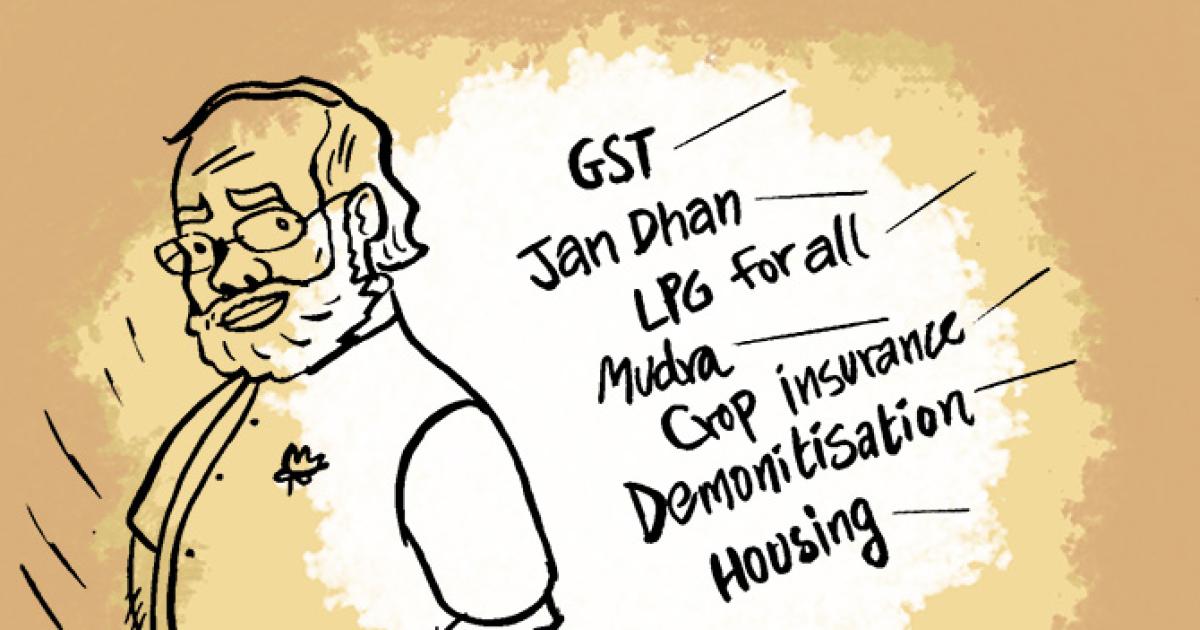 GST
Jan Dhan
LPG for all
Mudra
Crop insurance
Demonitisation
Housing